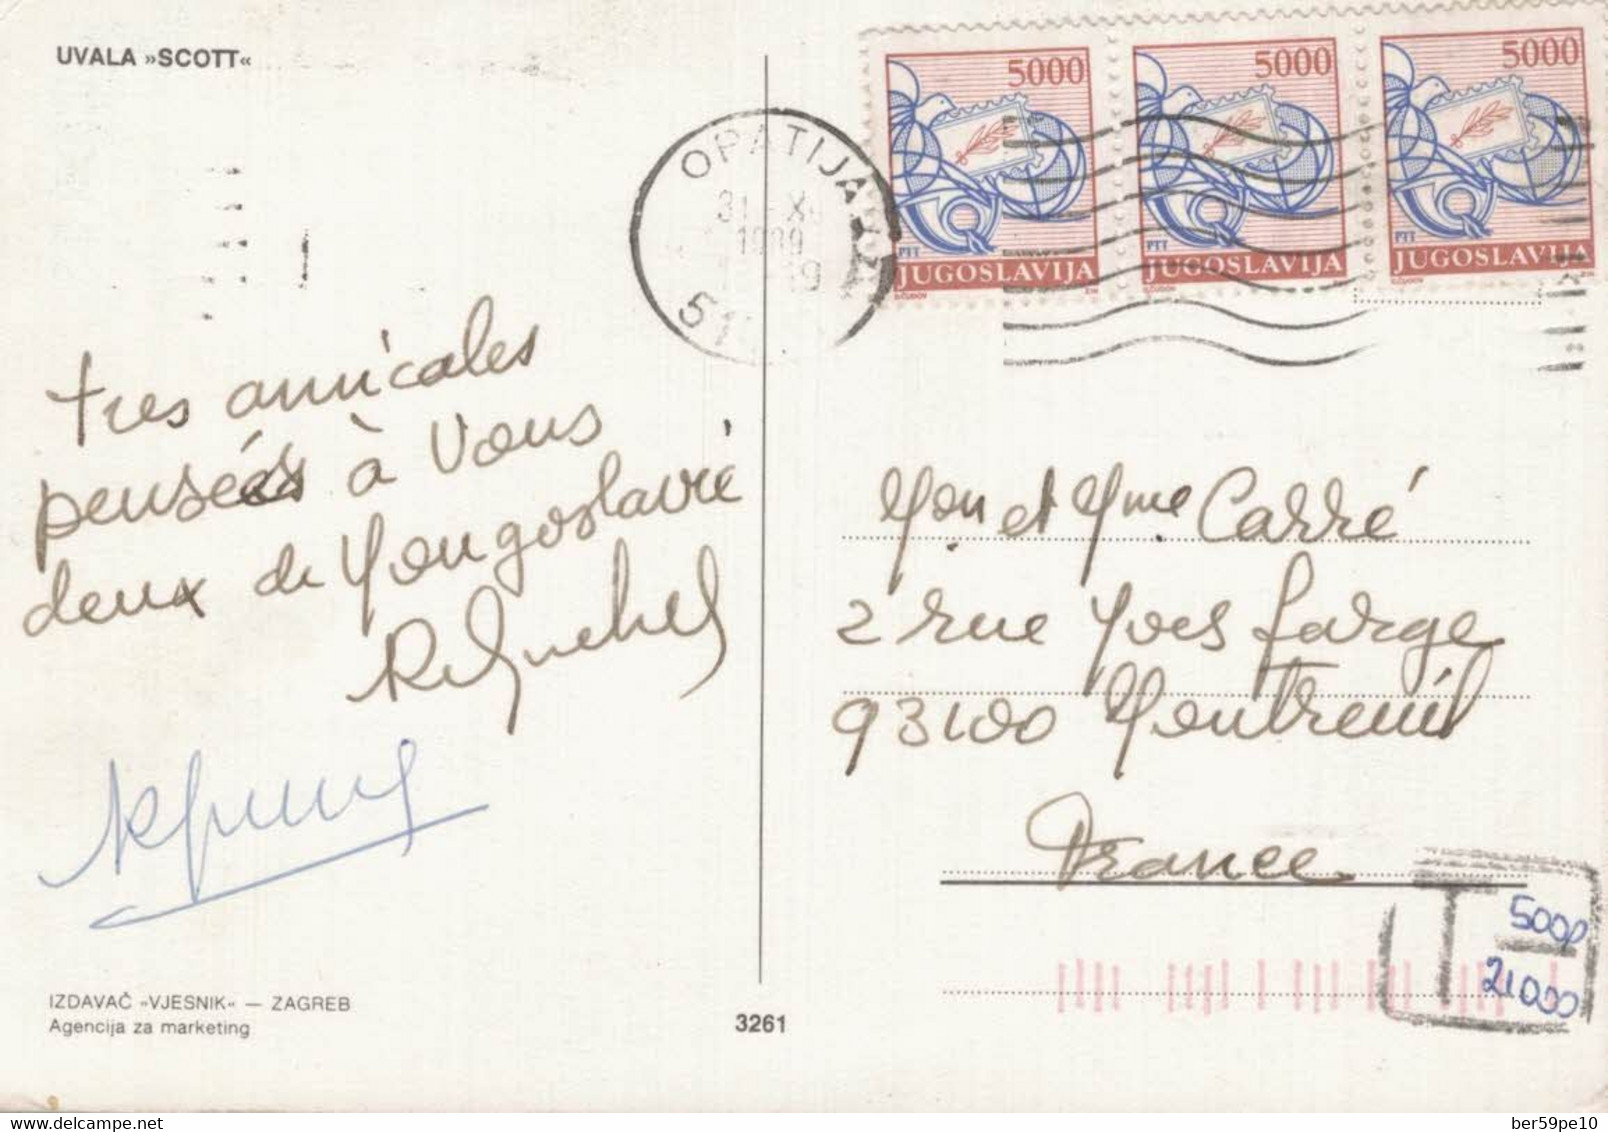 UVALA »SCOTT«
5000
5000
5000
OPATIJA
PTT
JUGOSLAVIJA
PTT
JUGOSLAVIJA
PTT
JUGOSLAVIJA
tres amicales
pensées à vous
deux de Yougoslavie
Mon et Mme Carré
2 rue Yves Farge
93100 Montreuil
France
T
5000
21000
IZDAVAČ »VJESNIK« — ZAGREB
Agencija za marketing
3261
ber59pe10